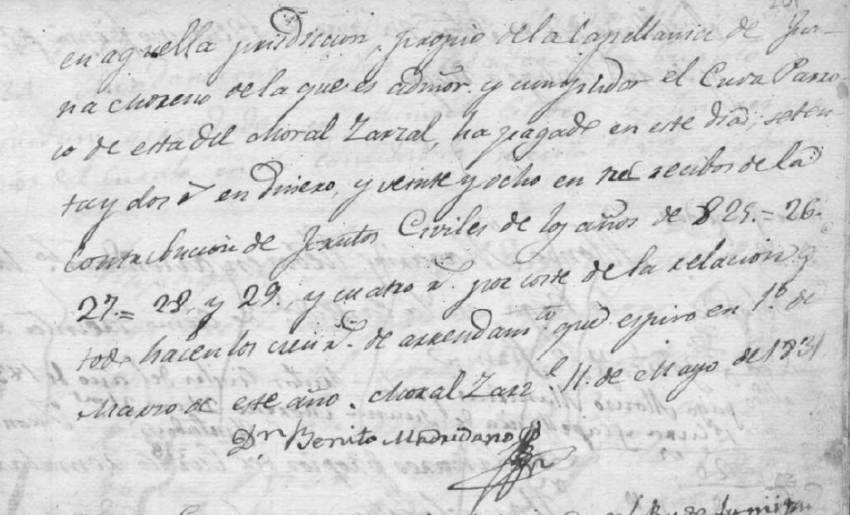 en aquella jurisdiccion, propio de la Capellania de Jua-
na Moreno de la que es admor. y cumplidor el Cura Parro-
co de esta del Moral Zarzal, ha pagado en este dia, seten-
ta y dos rs en dinero, y veinte y ocho en recibos de la
contribucion de frutos Civiles de los años de 825.= 26.
27.= 28, y 29., y cuatro rs. por coste de la relacion, q
todo hacen los cien rs. de arrendamto. que espiro en 1º de
Marzo de este año. Moral Zarzl. 11. de Mayo de 1831
Dn Benito Madridano